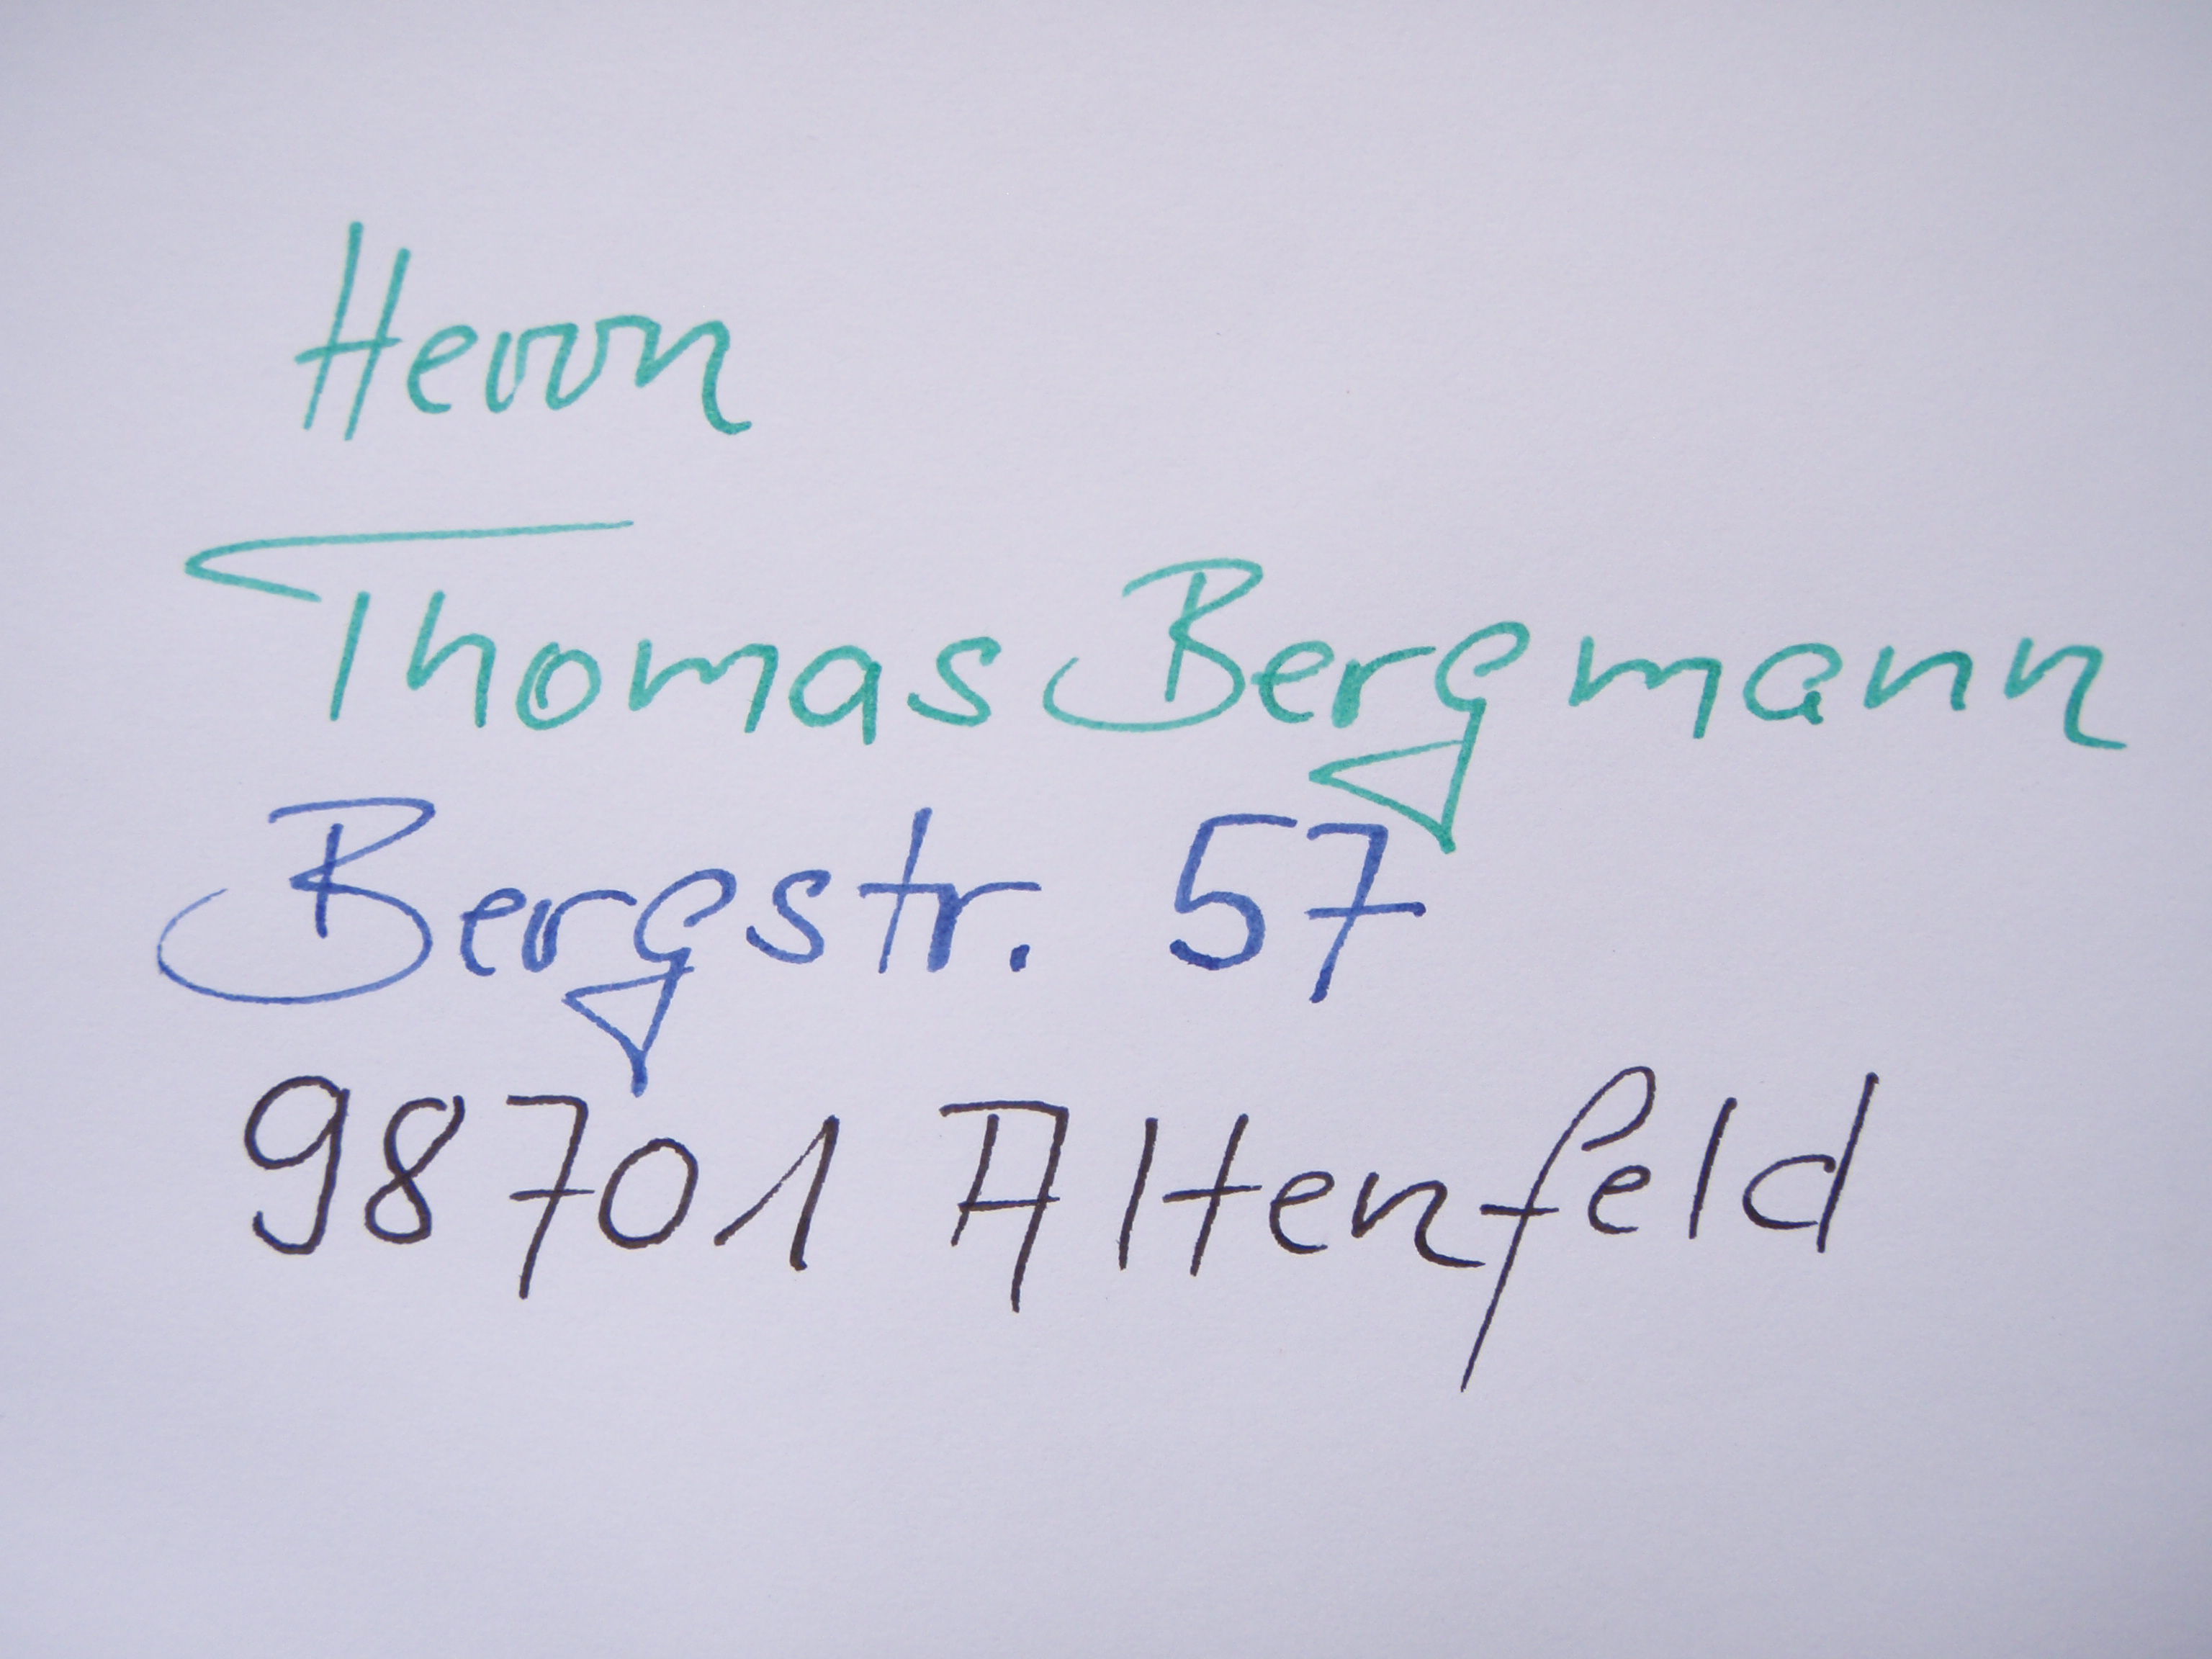 Herrn
Thomas Bergmann
Bergstr. 57
98701 Altenfeld